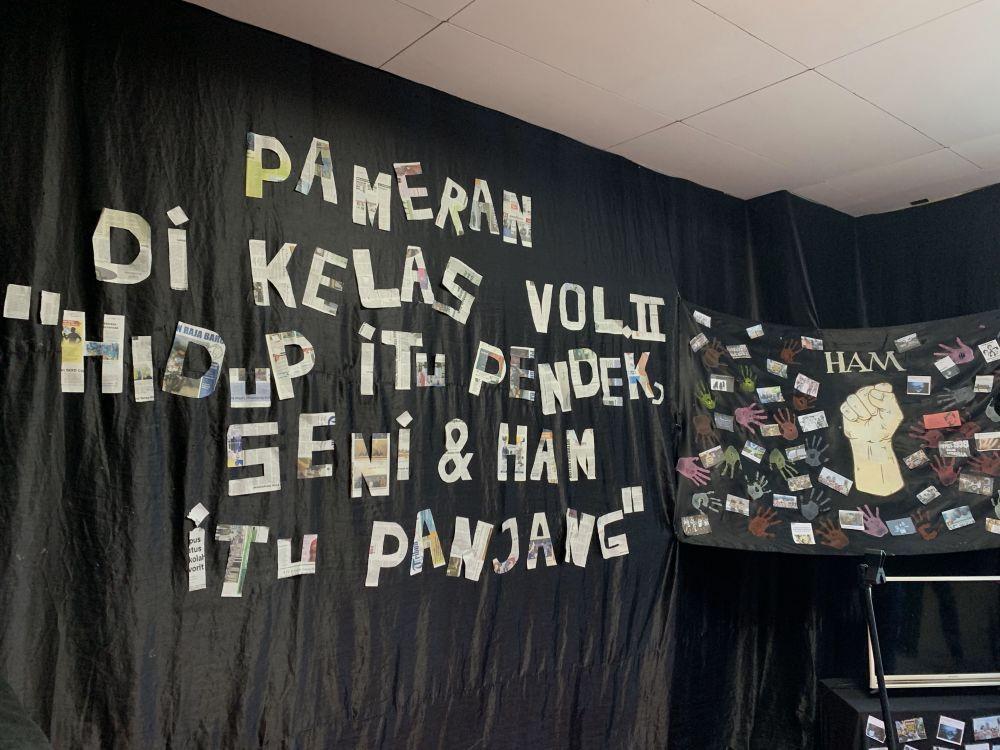 PAMERAN
Di KELAS VOL.II
"HiDUP iTu PENDEK,
SENi & HAM
iTu PANJANG"
HAM